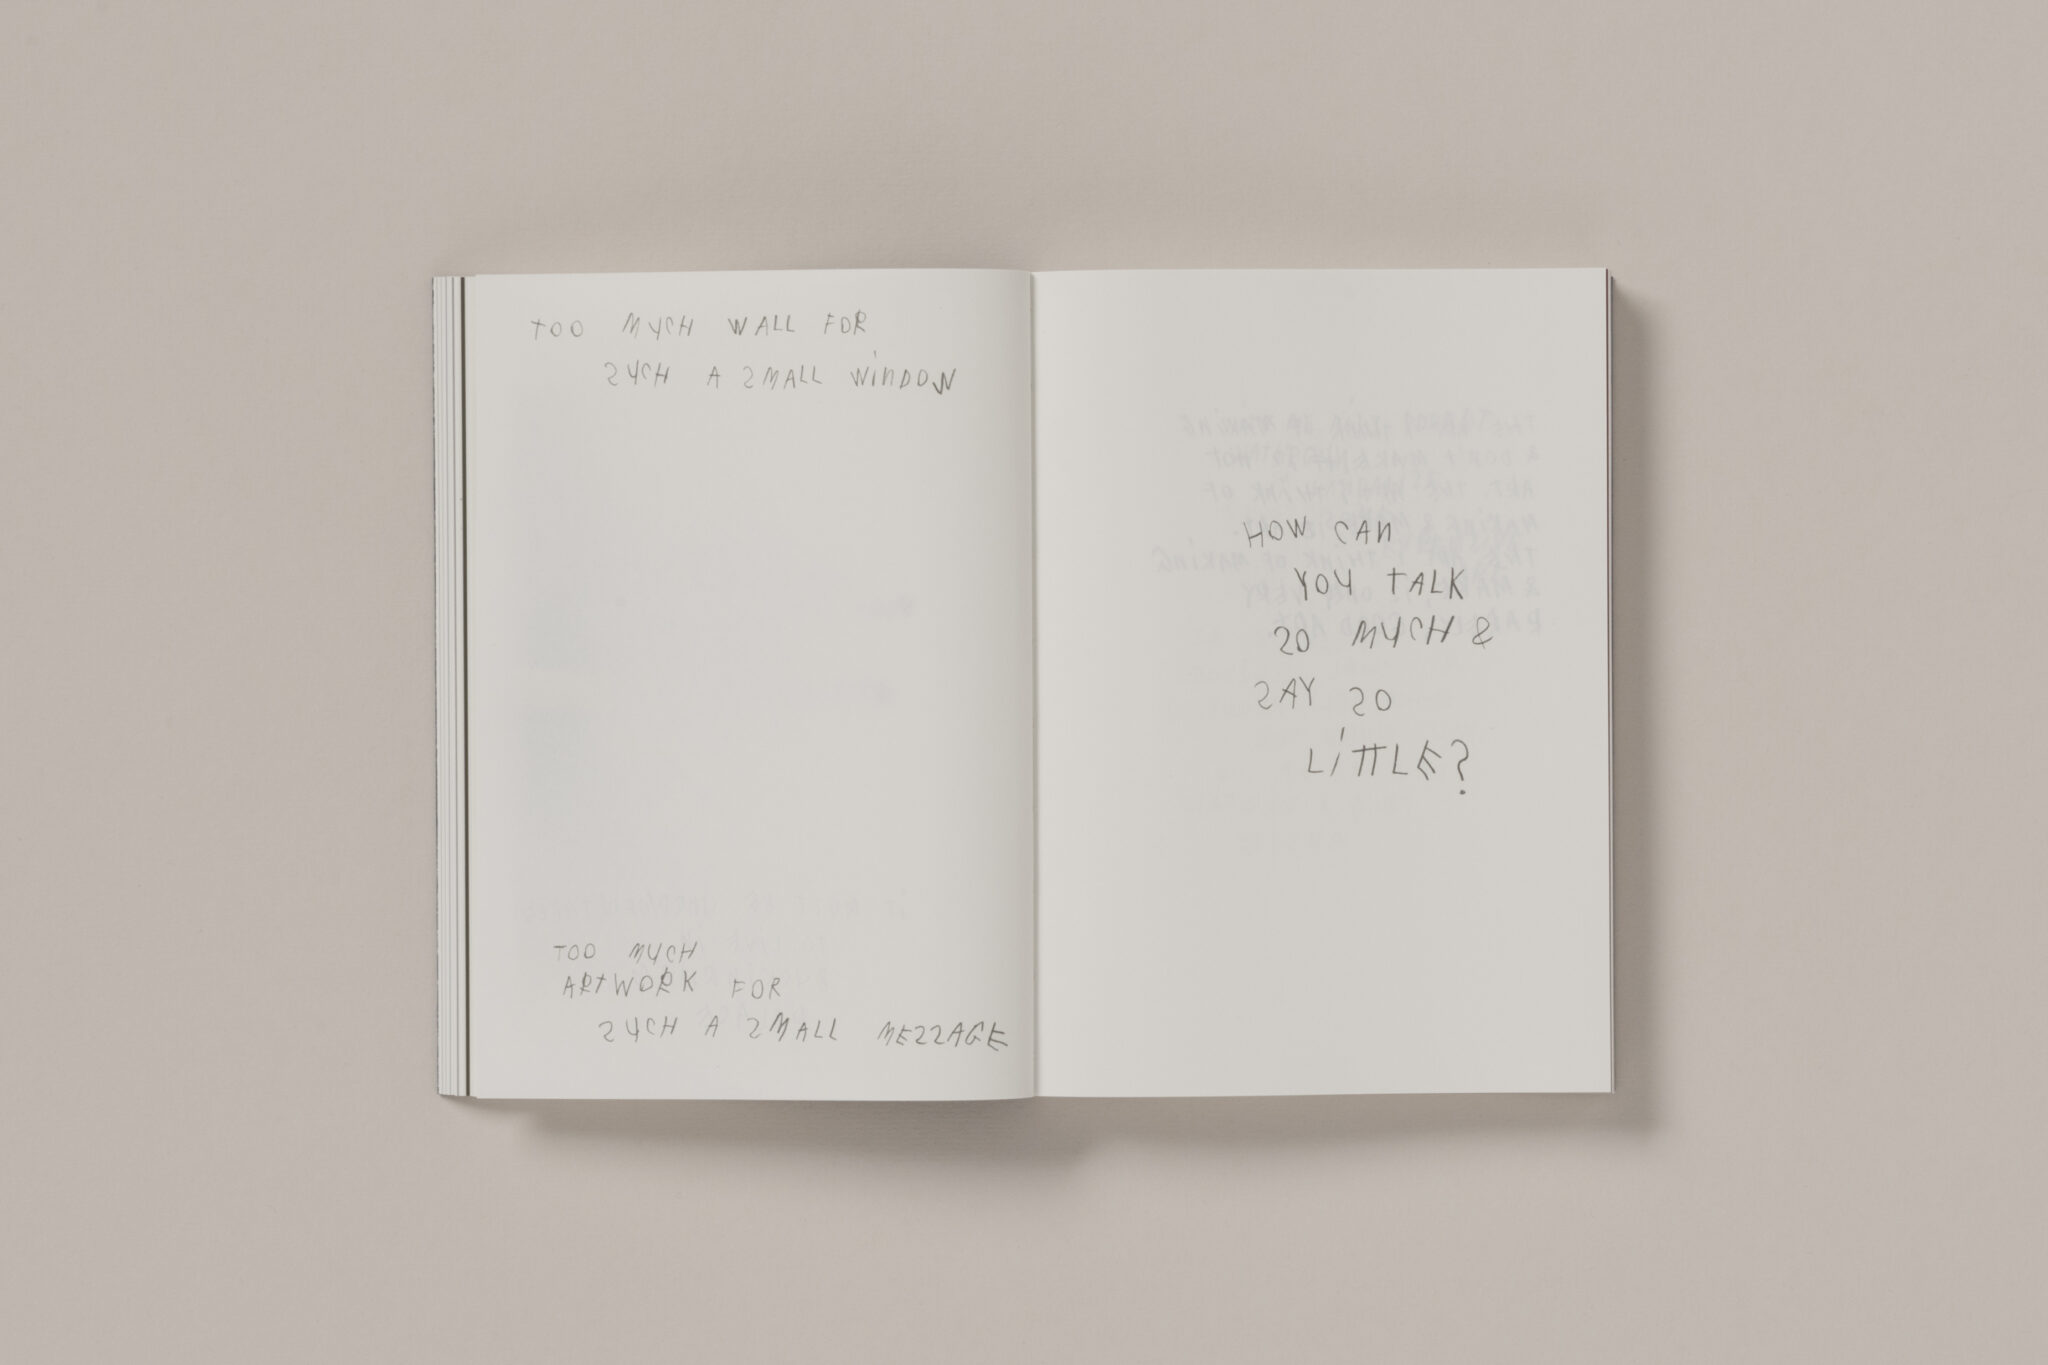 TOO MUCH WALL FOR
SUCH A SMALL WiNDOW
TOO MUCH
ARTWORK FOR
SUCH A SMALL MESSAGE
HOW CAN
YOU TALK
SO MUCH &
SAY SO
LiTTLE?